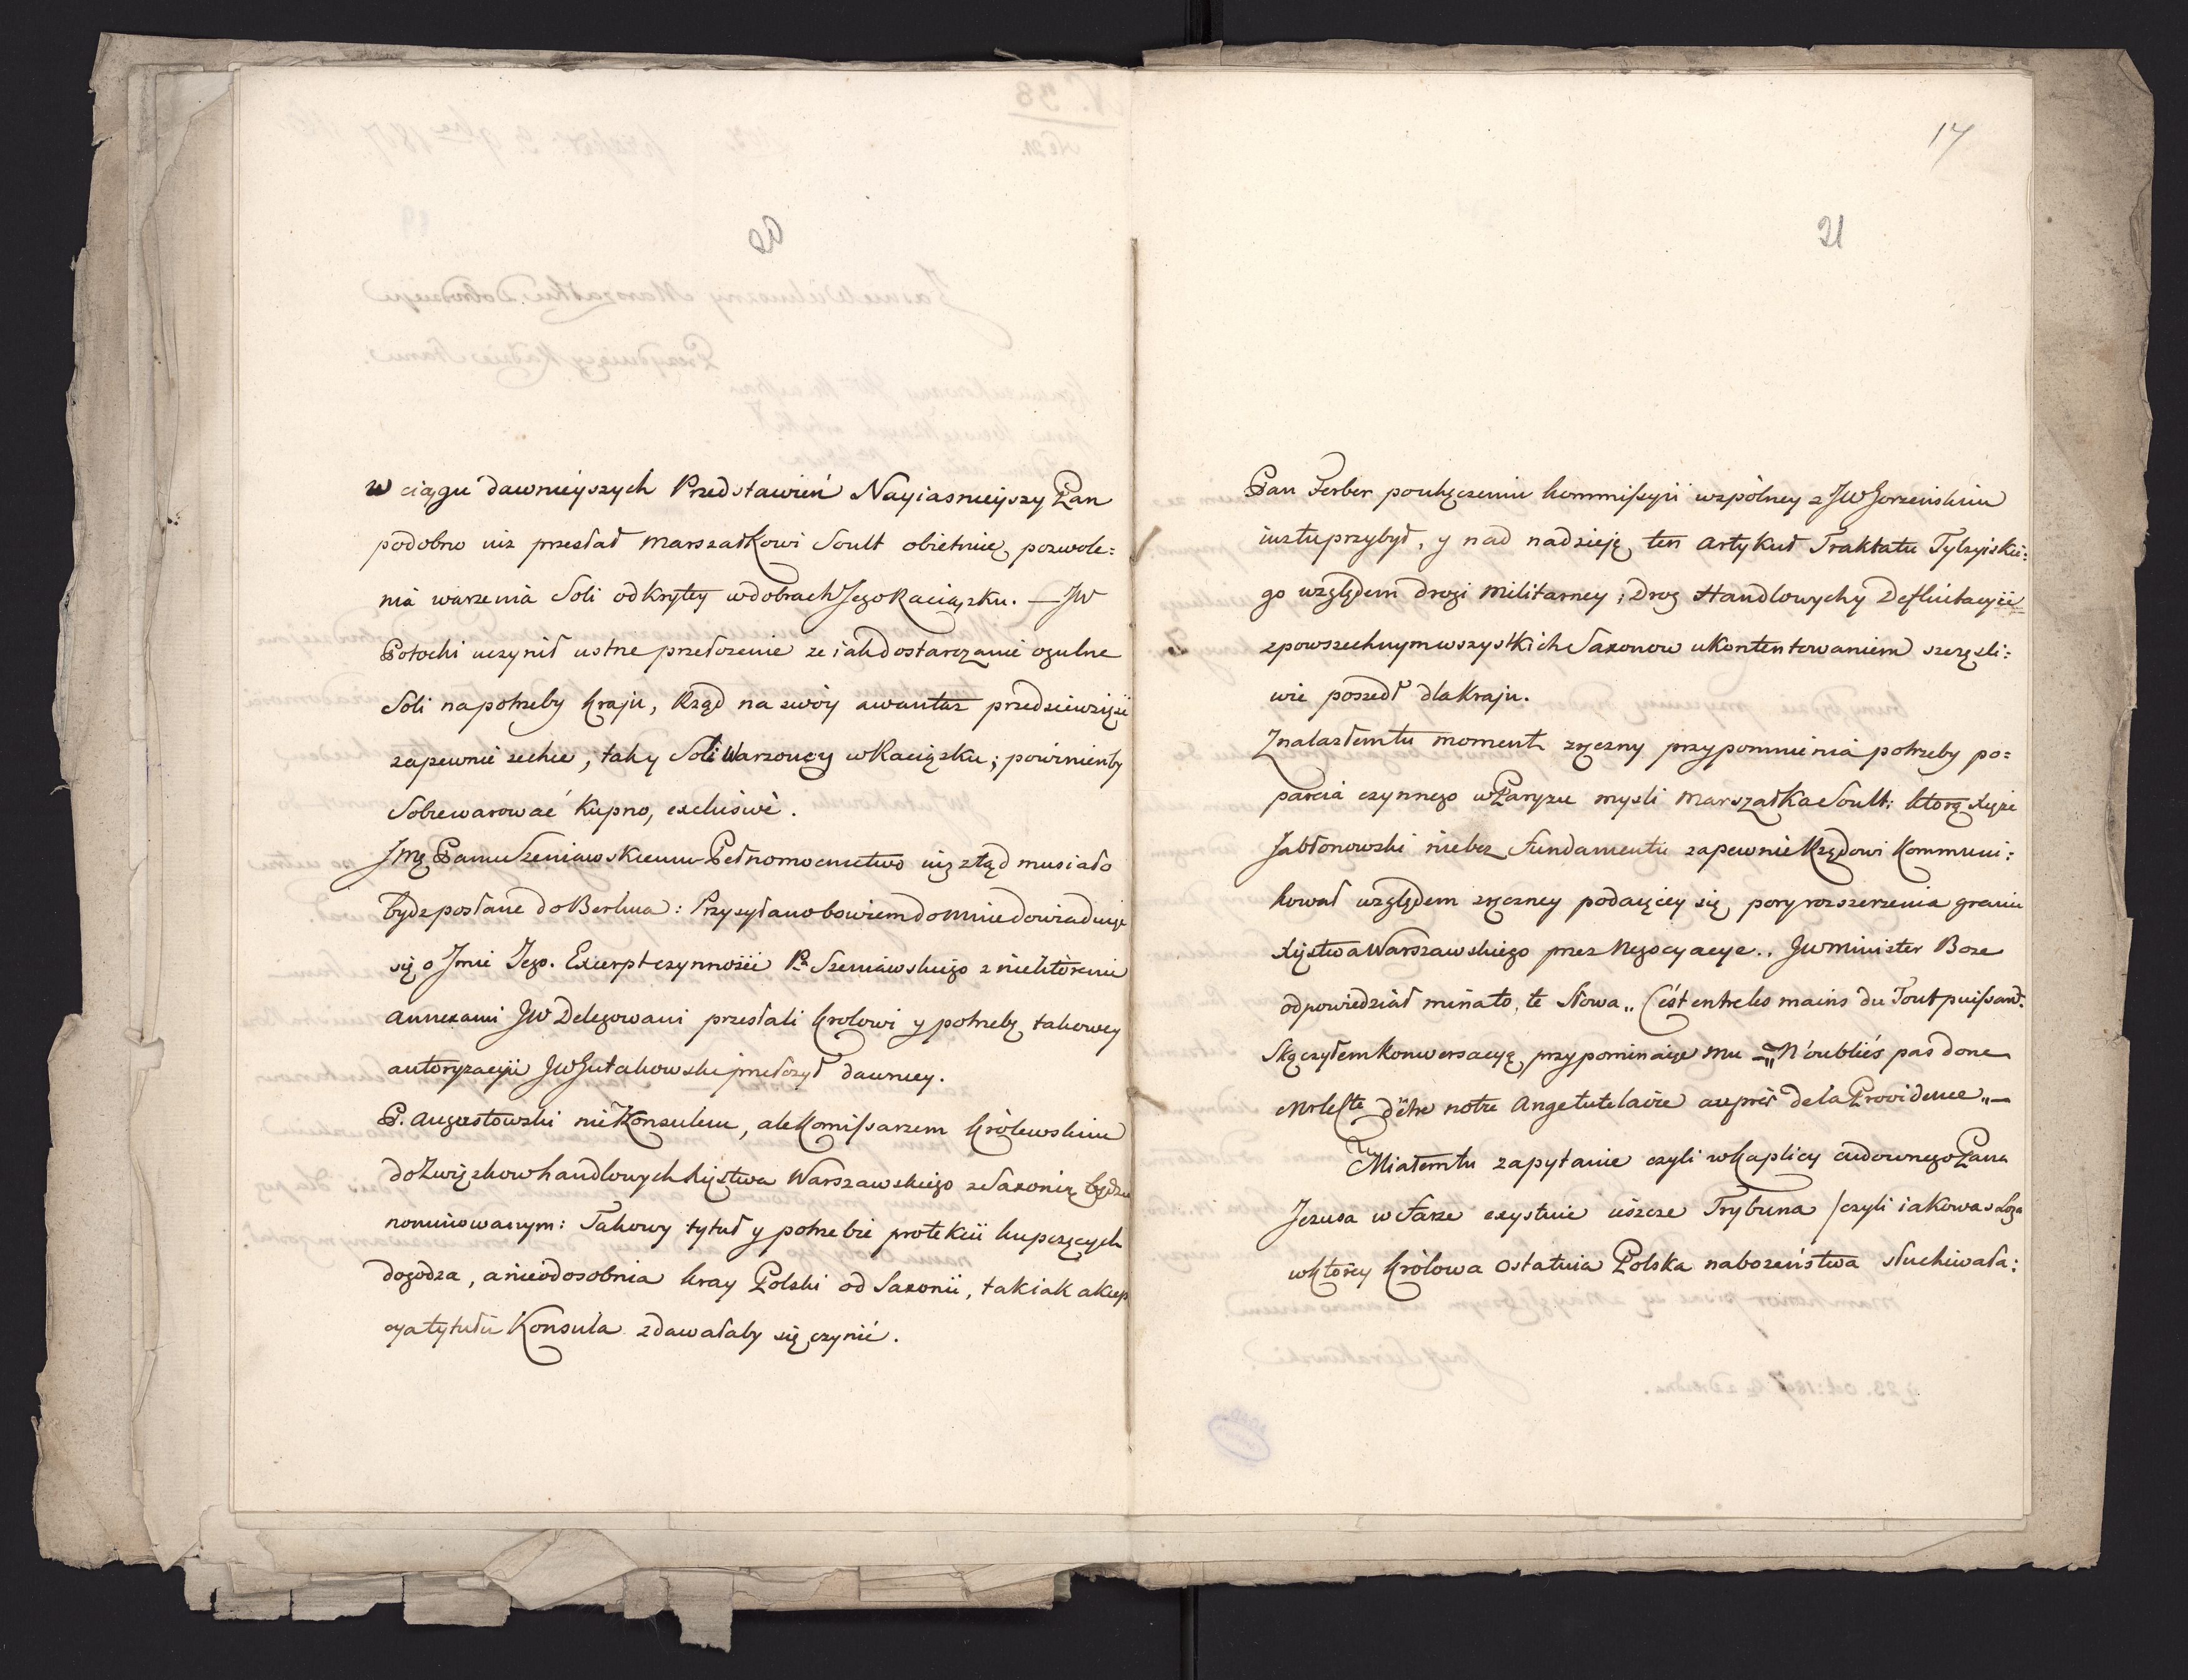 20
w ciągu dawnieyszych Przedstawień Nayiasnieyszy Pan
podobno iuz przesłał Marszałkowi Soult obietnię pozwole:
nia warzenia Soli odkrytey w dobrach Jego Raciązku. — JW
Potocki uczynił ustne przełozenie ze iak dostarczanie ogulne
Soli na potrzeby kraju, Rząd na swóy awantaz przedsiewziąść
zapewnie zechce, taky Soli Warzoney w Raciązku; powinienby
Sobie warować Kupno, exclusivè.
Jmę Panu Szeniawskiemu Pełnomocnictwo iuz ztąd musiało
bydz posłane do Berlina: Przysyłano bowiem do mnie dowiaduiąc
się o Jmie Jego. Excerpt czynności Pa Szeniawskiego z niektóremi
annexami JW Delegowani przesłali krolowi y potrzebę takowey
autoryzacyi JW Gutakowski przełozył dawniey.
P. Augustowski nie Konsulem, ale Komissarzem królewskim
do Związkow handlowych Xięstwa Warszawskiego z Saxonią będzie
nominowanym: Takowy tytuł y potrzebie protekcii kupczących
dogodza, a nieodosobnia kray Polski od Saxonii, tak iak akcep
cya tytułu Konsula zdawałaby się czynić.
17
21
Pan Ferber po ukączeniu kommissyii wspólney z JW Gorzeńskim
iuz tu przybył, y nad nadzieję ten Artykuł Traktatu Tylzyiskie:
go względem drogi Militarney; Drog Handlowych y Defluitacyii
z powszechnym wszystkich Saxonow ukontentowaniem szczęśli:
wie poszedł dla Kraju.
Znalazłem tu moment zręczny przypomnienia potrzeby po:
parcia czynnego w Paryzu mysli Marszałka Soult: ktorą Xiąże
Jabłonowski nie bez fundamentu zapewnie Rządowi Kommuni:
kował względem zręczney podaiącey się pory rozszerzenia granic
Xięstwa Warszawskiego przez Negocyacye.. JW Minister Boze
odpowiedział mi na to, te słowa „ C'est entre les mains du Tout puissant.
Skączyłem Konwersacyą, przypominaiąc mu — „N'oubliés pas donc
d'être notre Ange tutelaire auprès de la Providence„ —
Miałem tu zapytanie czyli w Kaplicy cudownego Pana
Jezusa w Farze exystuie ieszcze Trybuna /czyli iakowas Loza
w ktorey królowa ostatnia Polska nabozeństwa słuchiwała: